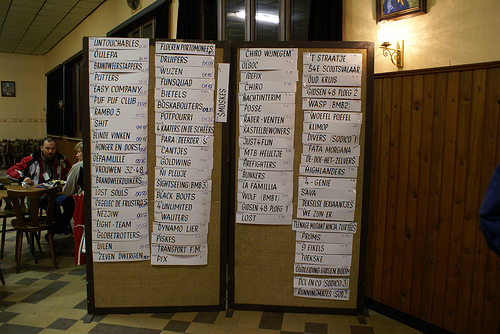 UNTOUCHABLES
OULEPA
BRANDWEERSTAPPERS
PUTTERS
EASY COMPANY
PUF PUF CLUB
RAMBO 3
SHIT
BLINDE VINKEN
HONGER EN DORST
DEFAMILLE
VROUWEN 32-48
BRANDWEERDUIKERS
LOST SOULS
NEZOTW
EIGHT-TEAM
GLOBETROTTERS
UILEN
ZEVEN DWERGEN
FLIEREN PORTOMONEES
DRUIPERS
WIJZEN
FUNSQUAD
BIETELS
BOSKABOUTERS
POTPOURRI
4 KAATERS EN DE SCHEERS
PARA (EERDER)S
ZANTJES
GOLDWING
NI PLEUJE
SIGHTSEEING (BMB)
BLACK BOOTS
4 UNLIMITED
WAUTERS
DYNAMO LIER
PISKES
TRANSPORT F.M.
PIX
SMOSKES
CHIRO WIJNEGEM
OLSOC
IDEFIX
CHIRO
NACHTINTERIM
POSSE
RADER-VENTER
KASTEELBEWONERS
JUST4FUN
MTB HEULTJE
FREEFIGHTERS
BUNKERS
LA FAMILLIA
WOLF (BMB)
GIDSEN 48 PLOEG 1
LOST
'T STRAATJE
54E SCOUTSVLAAR
OUD KRUIS
GIDSEN 48 PLOEG 2
WASP (BMB2)
WOEFEL POEFEL
KLIMOP
DIVERS (SODICO)
FATA MORGANA
DE-DOE-HET-ZELVERS
HIGHLANDERS
4-GENIE
SAVA
TEKSELSE DEKVAANTJES
WE ZIJN ER
TEENAGE MUTANT NINJA TURTLES
PROMS
9 EIKELS
TOEKSKE
OUDLEIDING GIDSEN BOOM
OCL EN CO (SODICO 3)
RUNNINGMATES (SOD)